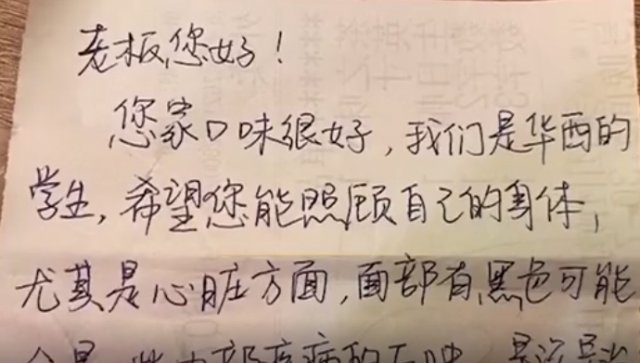 老板,您好！
您家口味很好，我们是华西的
学生，希望您能照顾自己的身体，
尤其是心脏方面，面部有黑色可能